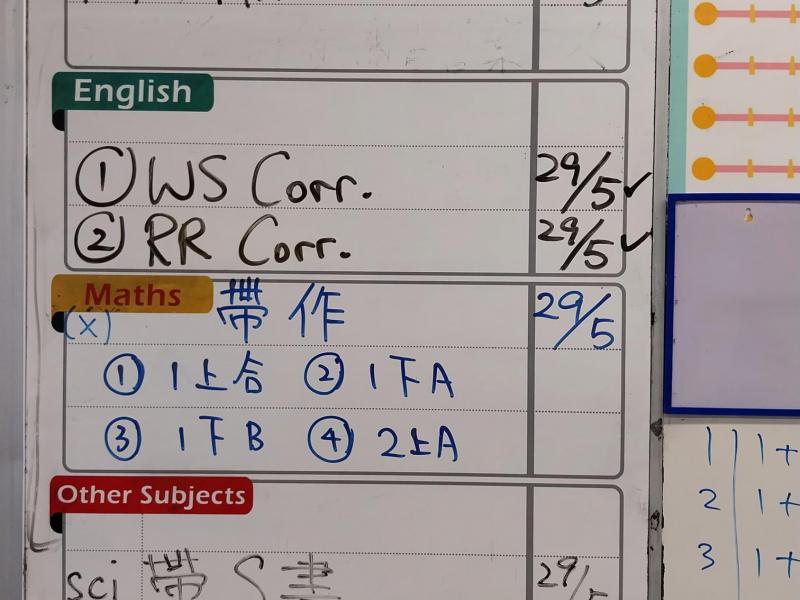 English
① WS Corr. 29/5 ✓
② RR Corr. 29/5 ✓
Maths 帶作 29/5
(X)
① 1上合 ② 1下A
③ 1下B ④ 2上A
Other Subjects
sci 帶 S 書 29/5
1 1+
2 1+
3 1+